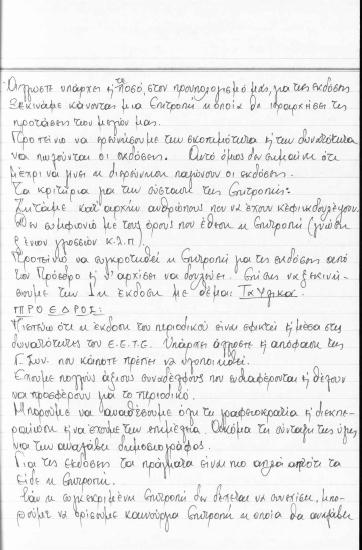 Άλλωστε υπάρχει ή το ποσό, στον προϋπολογισμό μας, για τις εκδόσεις
Ξεκινάμε κάνοντας μια Επιτροπή η οποία θα ιεραρχήσει τις
προτάσεις των μελών μας.
Προτείνω να ερευνήσουμε την σκοπιμότητα ή την δυνατότητα
να πωλούνται οι εκδόσεις. Αυτό όμως δεν σημαίνει ότι
μέχρι να γίνει η διερεύνηση παγώνουν οι εκδόσεις.
Τα κριτήρια για την σύσταση της Επιτροπής:
Ζητάμε κατ' αρχήν ανθρώπους που να έχουν κέφι και δουλέψουν.
Δεν συμφωνώ με τους όρους που έθεσε η Επιτροπή (γνώση
ξένων γλωσσών κ.λ.π)
Προτείνω να συγκροτηθεί η Επιτροπή για τις εκδόσεις από
τον Πρόεδρο ή ν' αρχίσει να δουλεύει. Επίσης να ξεκινή-
σουμε την 1η έκδοση με θέμα: Τα Υλικά.
ΠΡΟΕΔΡΟΣ:
Πιστεύω ότι η έκδοση του περιοδικού είναι εφικτή ή μέσα στις
δυνατότητες του Ε.Ε.Τ.Ε. Υπάρχει άλλωστε ή απόφαση της
Γ.Συν. που κάποτε πρέπει να υλοποιηθεί.
Έχουμε πολλούς άξιους συναδέλφους που ενδιαφέρονται ή θέλουν
να προσφέρουν για το περιοδικό.
Μπορούμε να αναθέσουμε όλη τη γραφειοκρατία ή διεκπε-
ραίωση ή να έχουμε την επιμέλεια. Ακόμα τη σύνταξη της ύλης
να την αναλάβει δημοσιογράφος.
Για τις εκδόσεις τα πράγματα είναι πιο απλά απ' ότι τα
είδε η Επιτροπή.
Εάν η συγκεκριμένη Επιτροπή δεν δέχεται να συνεχίσει, μπο-
ρούμε να ορίσουμε καινούργια Επιτροπή η οποία θα αναλάβει